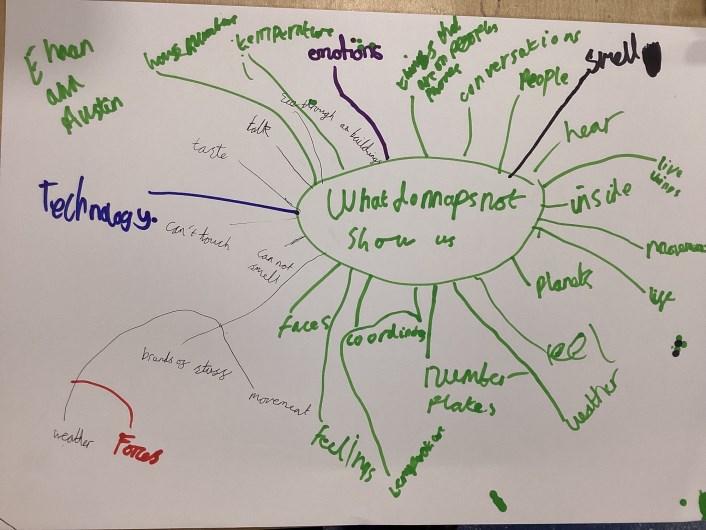 Ehaan
and
Austen
house numbers
temperature
emotions
things that
are on peoples
conversations
People
smell
hear
live
things
inside
movement
life
planets
feel
weather
number
plates
coordinates
temperature
feelings
faces
can not
smell
brands of stuff
movement
weather
Forces
can't touch
Technology.
taste
talk
see through a building
What do maps not
show us